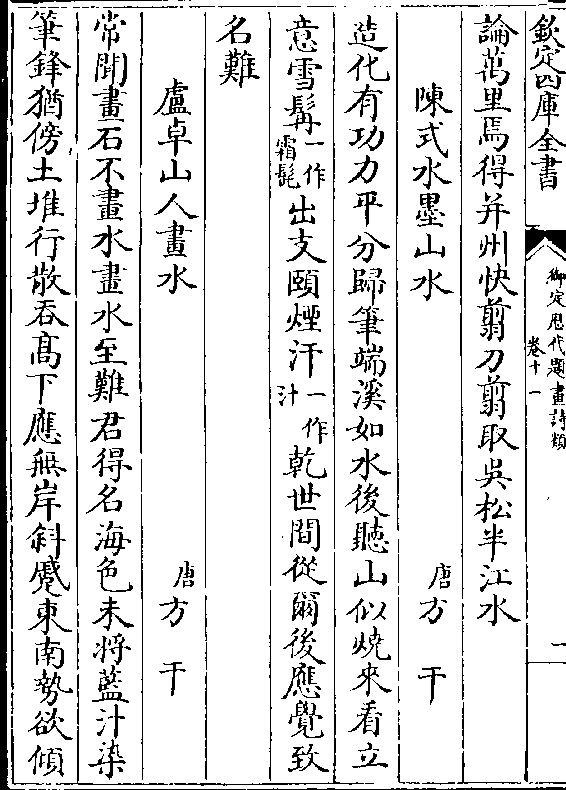 欽定四庫全書
御定厯代題畫詩類
卷十一
一
論萬里焉得并州快翦刀翦取吳松半江水
陳式水墨山水 唐方干
造化有功力平分歸筆端溪如水後聽山似燒來看立
意雪髯一作霜髭出支頤煙汗一作汁乾世間從爾後應覺致
名難
盧卓山人畫水 唐方干
常聞畫石不畫水畫水至難君得名海色未將藍汁染
筆鋒猶傍土堆行散吞髙下應無岸斜蹙東南勢欲傾